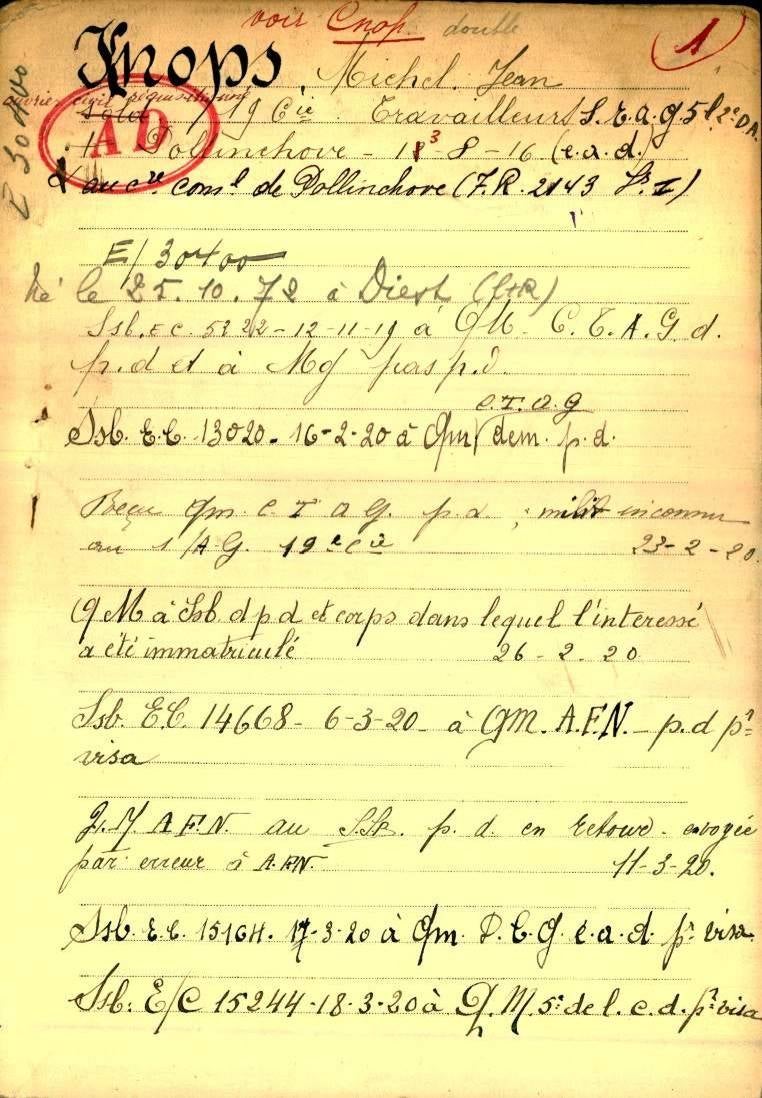 voir Cnop. double
1
Knops, Michel Jean
ouvrier civil réquisitionné
Soldt 19 Cie Travailleurs S. E. a. g. 5 l. 2e D A.
AD
Dollinchove - 13 - 8 - 16 (e. a. d.)
au cre comal de Dollinchove (F.R. 2143 Sn I)
E 30400
E/30400
Né le 25. 10. 72 à Diest
Ssb. E C. 5222 - 12-11-19 à QM. C. T. A. G d.
p. d et à Mg pas p. d.
C. T. a. g
Ssb. E. C. 13020. 16-2-20 à Qm dem. p. d.
Reçu Qm C T A G. p d ; milit inconnu
au 1/AG. 19e Cie 23-2-20.
QM à Ssb. d p d et corps dans lequel l'interessé
a été immatriculé 26 - 2 - 20
Ssb. E. C. 14668 - 6-3-20 - à QM. A.F.N. - p. d pr
visa
Q. M A F. N. au SSb. p. d. en retour - envoyée
par erreur à A. FN. 11-3-20.
Ssb. E. C. 15164. 17-3-20 à Qm. D. C. G. e. a. d. pr visa.
Ssb. E/C 15244-18-3-20 à Q. M. 5e de l. c. d. pr visa